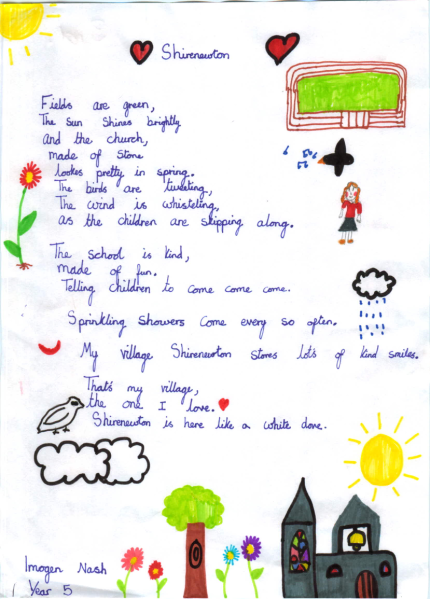 Shirenewton
Fields are green,
The sun shines brightly
and the church,
made of stone
lookes pretty in spring.
The birds are tweeting,
The wind is whisteling,
as the children are skipping along.
The school is kind,
made of fun.
Telling children to come come come.
Sprinkling showers come every so often.
My village Shirenewton stores lot's of kind smiles.
That's my village,
the one I love.
Shirenewton is here like a white dove.
Imogen Nash
Year 5